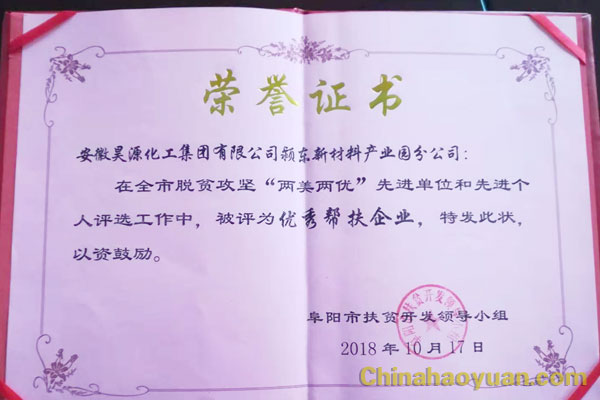 荣誉证书
安徽昊源化工集团有限公司颍东新材料产业园分公司：
在全市脱贫攻坚“两美两优”先进单位和先进个
人评选工作中，被评为优秀帮扶企业，特发此状，
以资鼓励。
阜阳市扶贫开发领导小组
2018 年 10 月 17 日
Chinahaoyuan.com